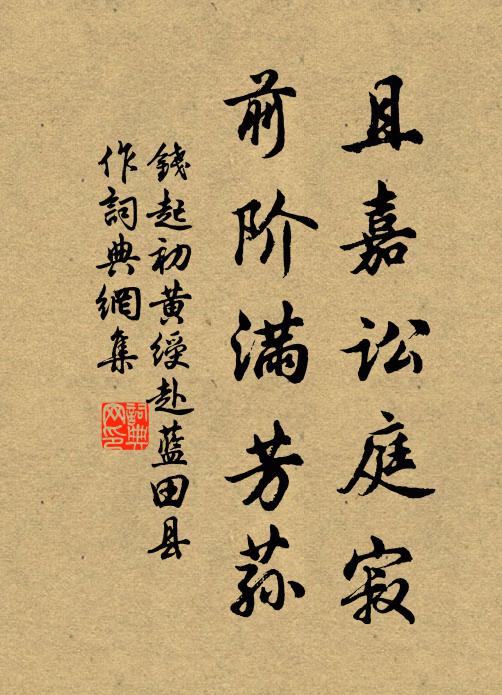 且嘉讼庭寂
前阶满芳荪
錢起初黃綬赴藍田县
作詞典網集
詞典网印